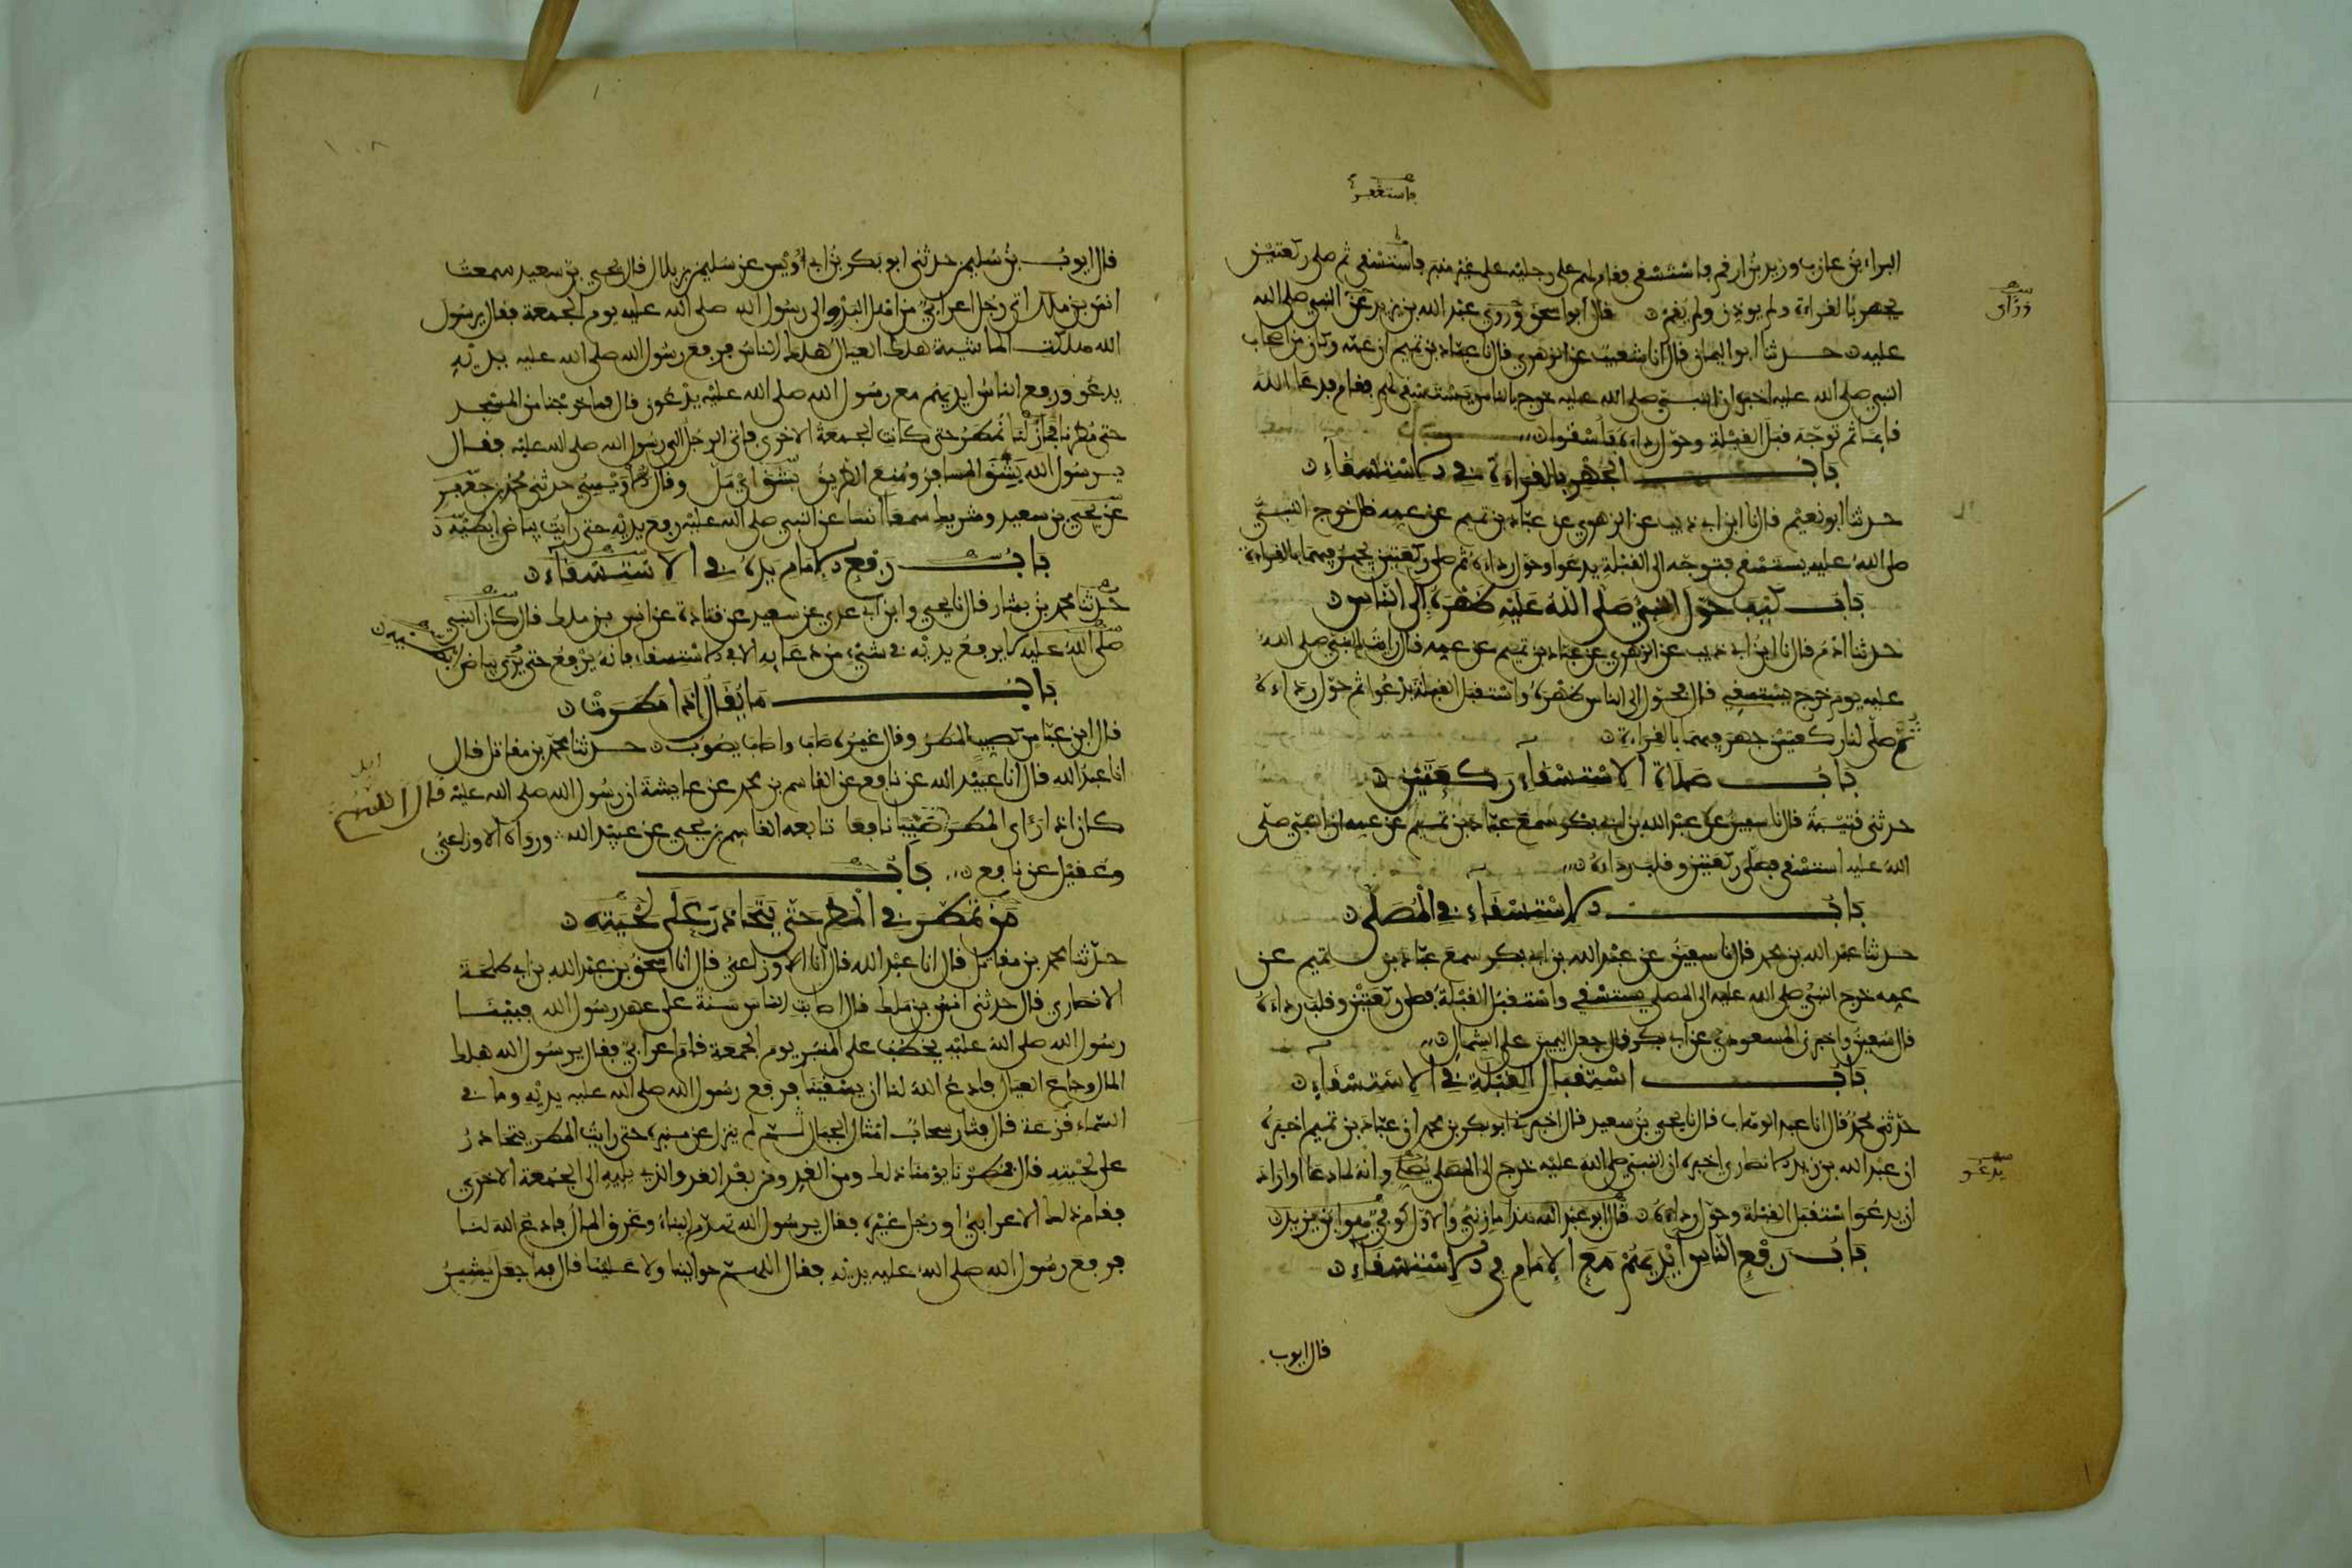 فاستغفر
البراء بن عازب وزيد بن ارقم فاستسقى فقام لهم على رجليه على غير منبر فاستسقى ثم صلى ركعتين
يجهر بالقراءة ولم يوذن ولم يقم قال ابو اسحق وروى عبد الله بن يزيد عن النبي صلى الله
ورأى
عليه حدثنا ابو اليمان قال انا شعيب عن الزهري قال نا عباد بن تميم ان عمه وكان من اصحاب
النبي صلى الله عليه اخبره ان النبي صلى الله عليه خرج بالناس يستسقي لهم فقام فدعا الله
قائما ثم توجه قبل القبلة وحول رداءه فأسقوا
باب الجهر بالقراءة في الاستسقاء
حدثنا ابو نعيم قال نا ابن ابي ذيب عن الزهري عن عباد بن تميم عن عمه قال خرج النبي
صلى الله عليه يستسقي فتوجه الى القبلة يدعوا وحول رداءه ثم صلى ركعتين يجهر فيهما بالقراءة
باب كيف حول النبي صلى الله عليه ظهره الى الناس
حدثنا ادم قال نا ابن ابي ذيب عن الزهري عن عباد بن تميم عن عمه قال رايت النبي صلى الله
عليه يوم خرج يستسقي قال فحول الى الناس ظهره واستقبل القبلة يدعوا ثم حول رداءه
ثم صلى لنا ركعتين جهر فيهما بالقراءة
باب صلاة الاستسقاء ركعتين
حدثني قتيبة قال نا سفين عن عبد الله بن ابي بكر سمع عباد بن تميم عن عمه ان النبي صلى
الله عليه استسقى فصلى ركعتين وقلب رداءه
باب الاستسقاء في المصلى
حدثنا عبد الله بن محمد قال نا سفين عن عبد الله بن ابي بكر سمع عباد بن تميم عن
عمه خرج النبي صلى الله عليه الى المصلى يستسقي واستقبل القبلة فصلى ركعتين وقلب رداءه
قال سفين واخبرني المسعودي عن ابي بكر قال جعل اليمين على الشمال
باب استقبال القبلة في الاستسقاء
حدثني محمد قال انا عبد الوهاب قال نا يحيى بن سعيد قال اخبرني ابو بكر بن محمد ان عباد بن تميم اخبره
ان عبد الله بن زيد الانصاري اخبره ان النبي صلى الله عليه خرج الى المصلى يصلي وانه لما دعا او اراد
يدعو
ان يدعوا استقبل القبلة وحول رداءه قال ابو عبد الله هذا مازني والاول كوفي هو ابن يزيد
باب رفع الناس ايديهم مع الامام في الاستسقاء
قال ايوب
١٠٨
قال ايوب بن سليمن حدثني ابو بكر بن ابي اويس عن سليمن بن بلال قال يحيى بن سعيد سمعت
انس بن ملك اتى رجل اعرابي من اهل البدو الى رسول الله صلى الله عليه يوم الجمعة فقال يرسول
الله هلكت الماشية هلك العيال هلك الناس فرفع رسول الله صلى الله عليه يديه
يدعو ورفع الناس ايديهم مع رسول الله صلى الله عليه يدعون قال فما خرجنا من المسجد
حتى مطرنا فما زلنا نمطر حتى كانت الجمعة الاخرى فاتى الرجل الى رسول الله صلى الله عليه فقال
يرسول الله بشق المسافر ومنع الطريق بشق اي مل وقال الاويسي حدثني محمد بن جعفر
عن يحيى بن سعيد وشريك سمعا انسا عن النبي صلى الله عليه رفع يديه حتى رايت بياض ابطيه
باب رفع الامام يده في الاستسقاء
حدثنا محمد بن بشار قال نا يحيى وابن ابي عدي عن سعيد عن قتادة عن انس بن ملك قال كان النبي
صلى الله عليه لا يرفع يديه في شيء من دعايه الا في الاستسقاء فانه يرفع حتى يرى بياض ابطيه
باب ما يقال اذا مطرت
قال ابن عباس كصيب المطر وقال غيره صاب واصاب يصوب حدثنا محمد بن مقاتل قال
انا عبد الله قال انا عبيد الله عن نافع عن القاسم بن محمد عن عايشة ان رسول الله صلى الله عليه
قال اللهم
كان اذا راى المطر صيبا نافعا تابعه القاسم بن يحيى عن عبيد الله ورواه الاوزاعي
وعقيل عن نافع باب
من تمطر في المطر حتى يتحادر على لحيته
حدثنا محمد بن مقاتل قال انا عبد الله قال انا الاوزاعي قال انا اسحق بن عبد الله بن ابي طلحة
الانصاري قال حدثني انس بن ملك قال اصابت الناس سنة على عهد رسول الله فبينا
رسول الله صلى الله عليه يخطب على المنبر يوم الجمعة قام اعرابي فقال يرسول الله هلك
المال وجاع العيال فادع الله لنا ان يسقينا فرفع رسول الله صلى الله عليه يديه وما في
السماء قزعة قال فثار سحاب امثال الجبال ثم لم ينزل عن منبره حتى رايت المطر يتحادر
على لحيته قال فمطرنا يومنا ذلك ومن الغد ومن بعد الغد والذي يليه الى الجمعة الاخرى
فقام ذلك الاعرابي او رجل غيره فقال يرسول الله تهدم البناء وغرق المال فادع الله لنا
فرفع رسول الله صلى الله عليه يديه فقال اللهم حوالينا ولا علينا قال فما جعل يشير